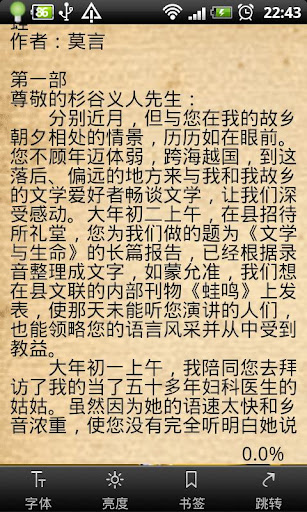 86
22:43
作者：莫言
第一部
尊敬的杉谷义人先生：
分别近月，但与您在我的故乡
朝夕相处的情景，历历如在眼前。
您不顾年迈体弱，跨海越国，到这
落后、偏远的地方来与我和我故乡
的文学爱好者畅谈文学，让我们深
受感动。大年初二上午，在县招待
所礼堂，您为我们做的题为《文学
与生命》的长篇报告，已经根据录
音整理成文字，如蒙允准，我们想
在县文联的内部刊物《蛙鸣》上发
表，使那天未能听您演讲的人们，
也能领略您的语言风采并从中受到
教益。
大年初一上午，我陪同您去拜
访了我的当了五十多年妇科医生的
姑姑。虽然因为她的语速太快和乡
音浓重，使您没有完全听明白她说
0.0%
字体 亮度 书签 跳转